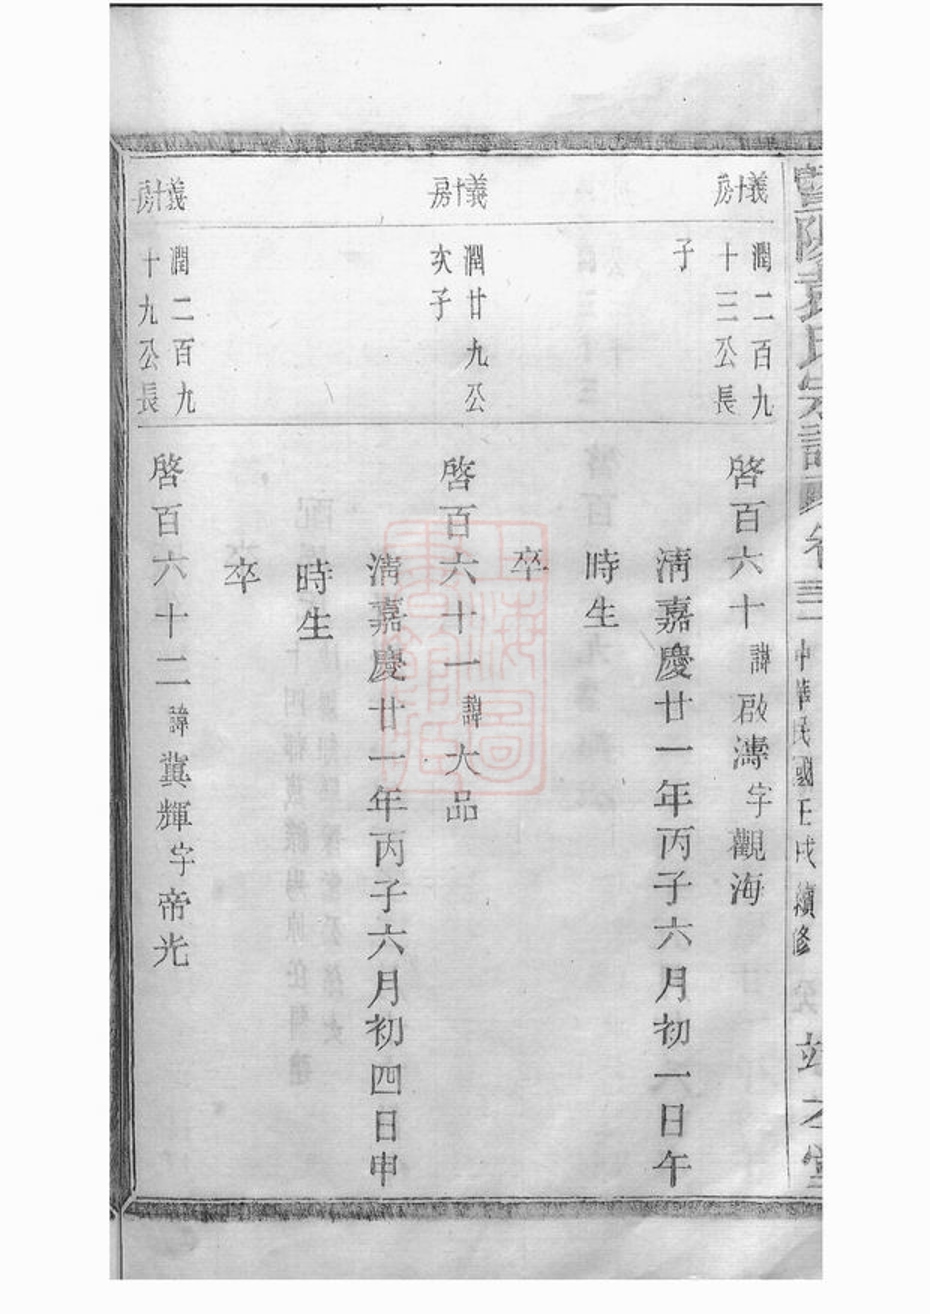 暨陽袁氏宗譜 卷三 中華民國壬戌續修
義十房
潤二百九
十三公長
子
啓百六十 諱啟濤字觀海
清嘉慶廿一年丙子六月初一日午
時生
卒
義十房
潤廿九公
次子
啓百六十一 諱大品
清嘉慶廿一年丙子六月初四日申
時生
卒
義十房
潤二百九
十九公長
啓百六十二 諱冀輝字帝光